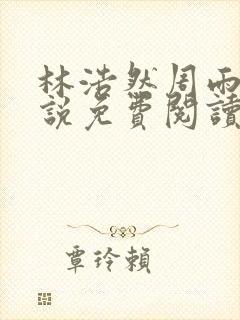 林浩然周雨
說免費閱讀
覃玲賴